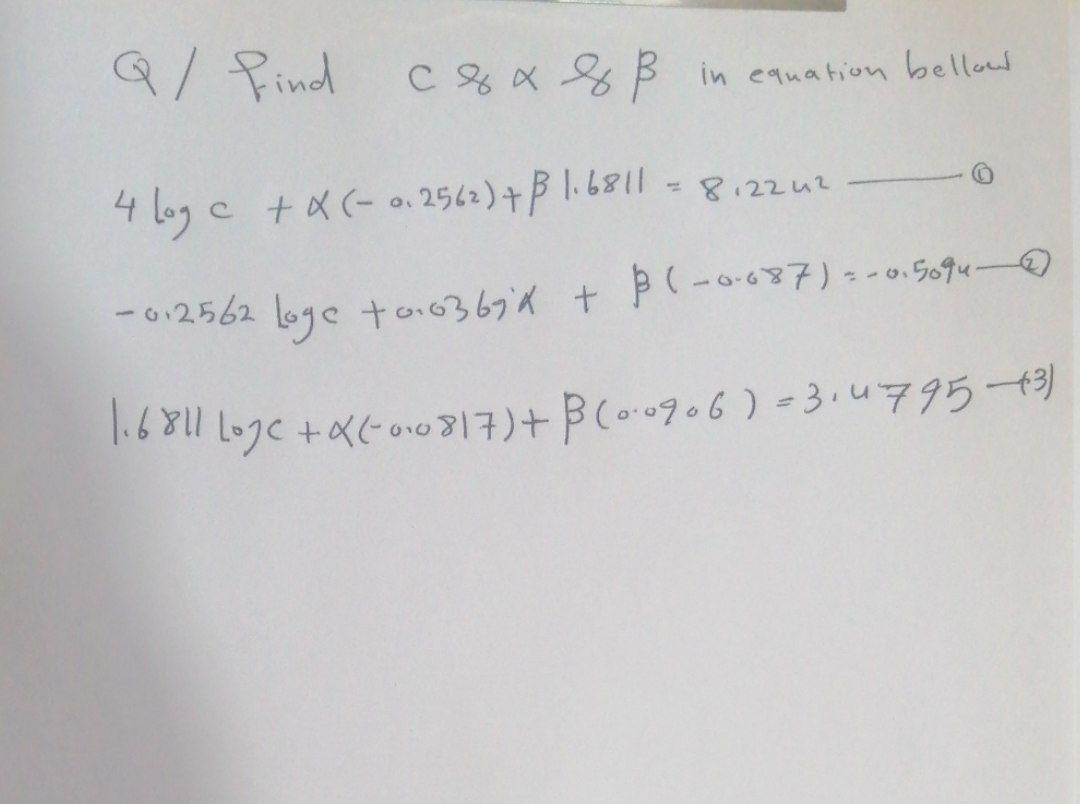 Q/ find c & α & β in equation bellow
4 log c + α(-0.2562)+β 1.6811 = 8.2242 —— ①
-0.2562 logc +0.0369α + β(-0.087) = -0.5094 — ②
1.6811 logc + α(-0.0817)+ β(0.0906) = 3.4795 — (3)